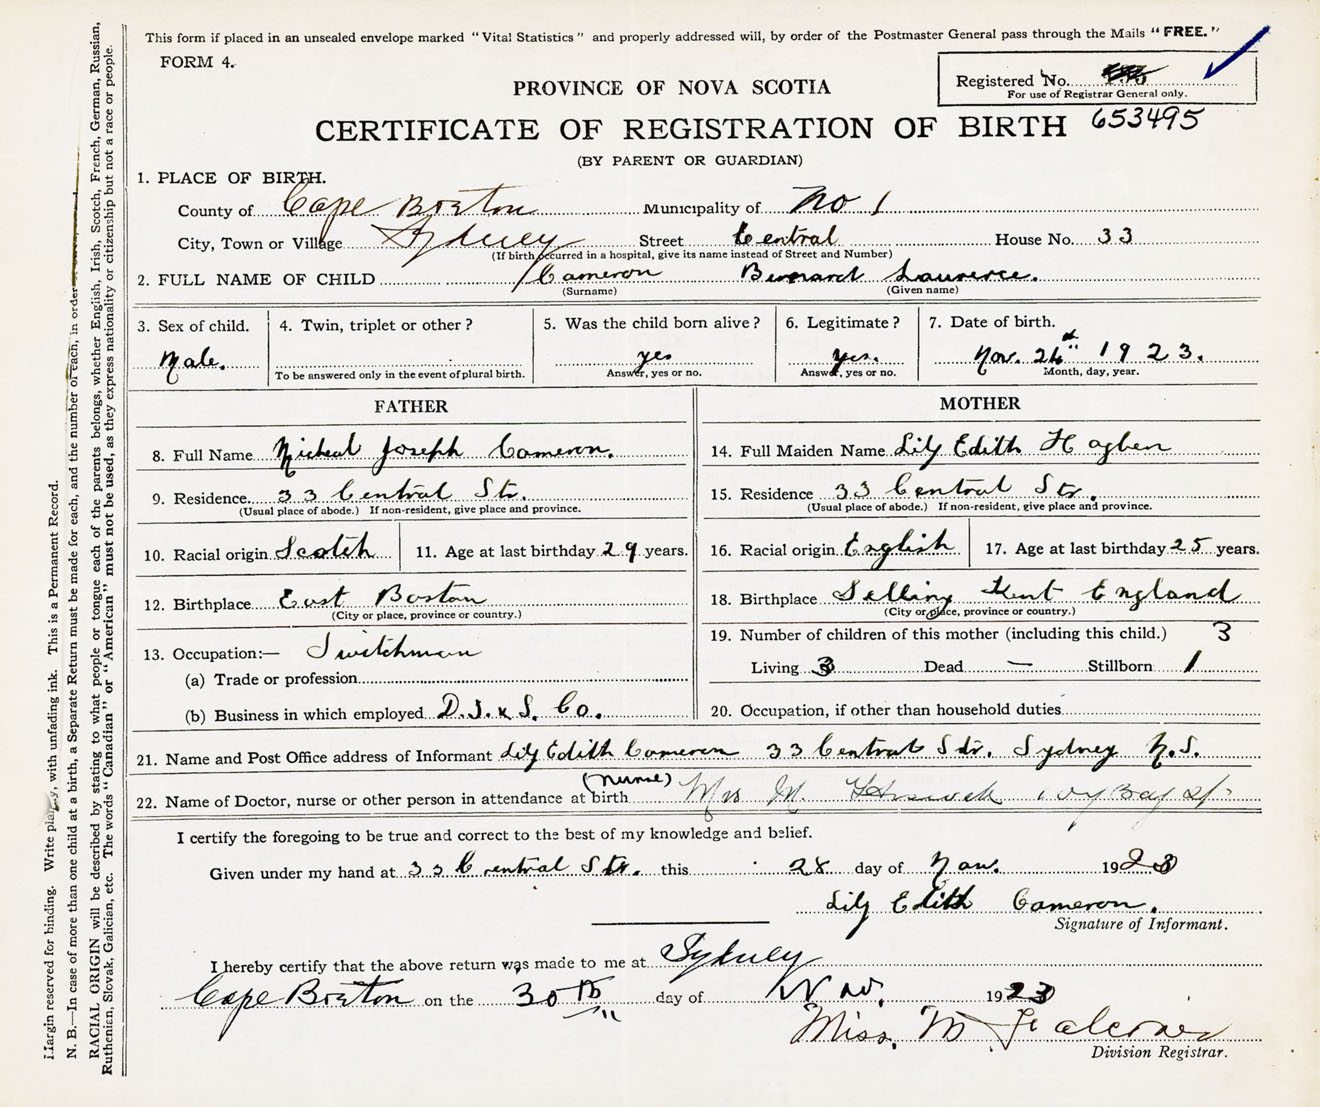 This form if placed in an unsealed envelope marked "Vital Statistics" and properly addressed will, by order of the Postmaster General pass through the Mails "FREE."
FORM 4.
Registered No.
For use of Registrar General only.
653495
PROVINCE OF NOVA SCOTIA
CERTIFICATE OF REGISTRATION OF BIRTH
(BY PARENT OR GUARDIAN)
1. PLACE OF BIRTH.
County of Cape Breton Municipality of No 1
City, Town or Village Sydney Street Central House No. 33
(If birth occurred in a hospital, give its name instead of Street and Number)
2. FULL NAME OF CHILD Cameron Bernard Laurence.
(Surname) (Given name)
3. Sex of child. 4. Twin, triplet or other? 5. Was the child born alive? 6. Legitimate? 7. Date of birth.
Male. yes yes. Nov. 26th 1923.
To be answered only in the event of plural birth. Answer, yes or no. Answer, yes or no. Month, day, year.
FATHER
8. Full Name Micheal Joseph Cameron.
9. Residence 33 Central Str.
(Usual place of abode.) If non-resident, give place and province.
10. Racial origin Scotch 11. Age at last birthday 29 years.
12. Birthplace East Boston
(City or place, province or country.)
13. Occupation:— Switchman
(a) Trade or profession
(b) Business in which employed D.I. & S. Co.
MOTHER
14. Full Maiden Name Lily Edith Hogben
15. Residence 33 Central Str.
(Usual place of abode.) If non-resident, give place and province.
16. Racial origin English 17. Age at last birthday 25 years.
18. Birthplace Selling Kent England
(City or place, province or country.)
19. Number of children of this mother (including this child.) 3
Living 3 Dead — Stillborn 1
20. Occupation, if other than household duties
21. Name and Post Office address of Informant Lily Edith Cameron 33 Central Str. Sydney N.S.
(Nurse)
22. Name of Doctor, nurse or other person in attendance at birth Mrs M.
I certify the foregoing to be true and correct to the best of my knowledge and belief.
Given under my hand at 33 Central Str. this 28 day of Nov. 1923
Lily Edith Cameron.
Signature of Informant.
I hereby certify that the above return was made to me at Sydney
Cape Breton on the 30th day of Nov. 1923
Miss. M Falconer
Division Registrar.
Margin reserved for binding. Write plainly, with unfading ink. This is a Permanent Record.
N. B.—In case of more than one child at a birth, a Separate Return must be made for each, and the number of each, in order
RACIAL ORIGIN will be described by stating to what people or tongue each of the parents belongs, whether English, Irish, Scotch, French, German, Russian,
Ruthenian, Slovak, Galician, etc. The words "Canadian" or "American" must not be used, as they express nationality or citizenship but not a race or people.